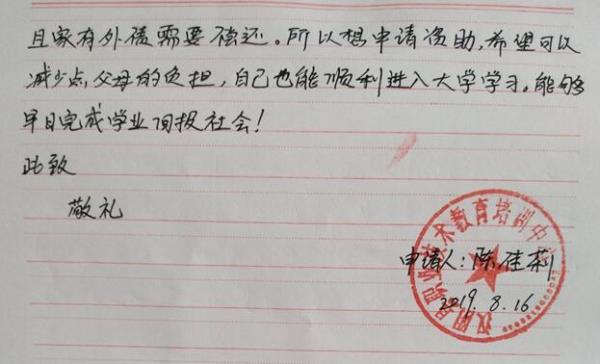 且家有外债需要偿还。所以想申请资助,希望可以
减少点父母的负担,自己也能顺利进入大学学习。能够
早日完成学业回报社会!
此致
敬礼
申请人:陈佳莉
2019.8.16
职业技术教育培训中心